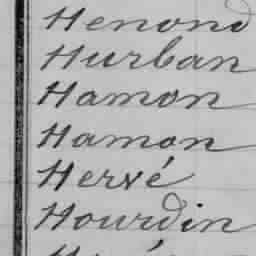 Henond
Hurban
Hamon
Hamon
Hervé
Hourdin